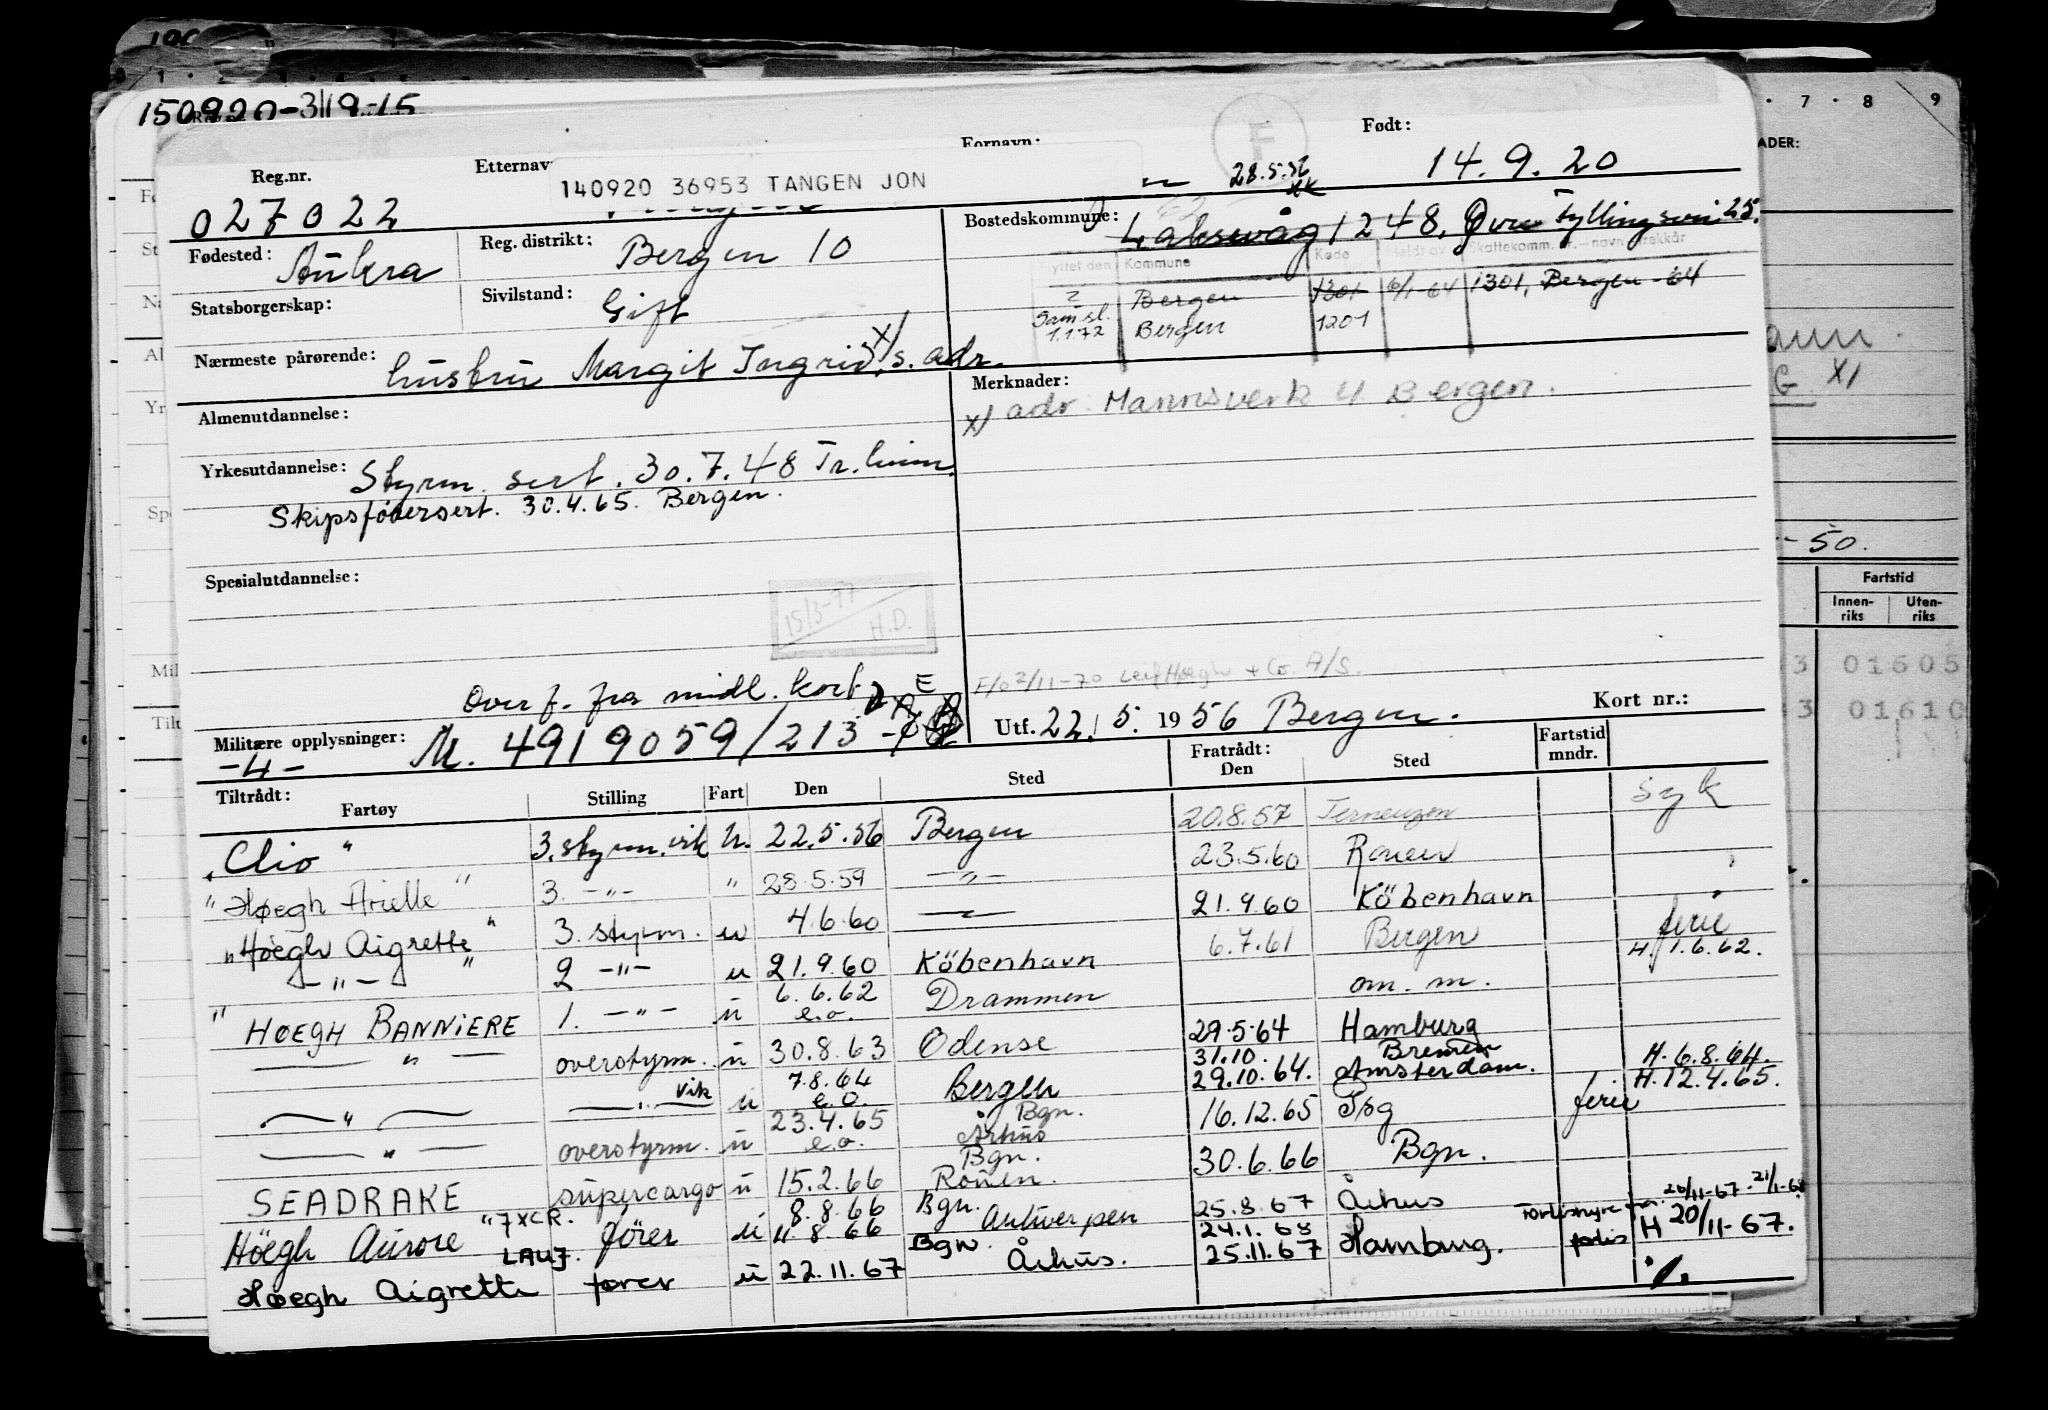 150920-31915
Reg.nr.
Etternav
Fornavn:
Født:
F
027022
140920 36953 TANGEN JON
28.5.56
14.9.20
Fødested: Aukra
Reg. distrikt: Bergen 10
Bostedskommune: Laksevåg 1248, Øvre Fyllingsvei 25.
Flyttet den Kommune Kode Meldt av Skattekomm. nr.-navn trekkår
Bergen 1301 6/1-64 1301, Bergen-64
Sam sl. 1.1.72 Bergen 1201
Statsborgerskap:
Sivilstand: Gift
Nærmeste pårørende: hustru Margit Ingrid, x/ s. adr.
Almenutdannelse:
Merknader:
x/ adr. Mannsverk 4 Bergen.
Yrkesutdannelse: Styrm. sert. 30.7.48 Tr.heim.
Skipsførersert. 30.4.65. Bergen.
Spesialutdannelse:
15/3-77
H.D.
Overf. fra midl. kort
E
F/o 2/11-70 Leif Høegh + Co. A/S.
Militære opplysninger: M. 4919059/213
-4-
Utf. 22.5. 1956 Bergen.
Kort nr.:
Tiltrådt:
Fartøy
Stilling
Fart
Den
Sted
Fratrådt:
Den
Sted
Fartstid
mndr.
"Clio" 3. styrm. vik u. 22.5.56 Bergen 20.8.57 Terneuzen syk
"Høegh Arielle" 3. -"- " 28.5.59 -"- 23.5.60 Rouen
"Höegh Aigrette" 3. styrm. u 4.6.60 -"- 21.9.60 Köbenhavn
-"- 2 -"- u 21.9.60 Köbenhavn 6.7.61 Bergen ferie
H. 1.6.62.
" HØEGH BANNIERE 1. -"- u 6.6.62 e.o. Drammen om. m.
-"- overstyrm. u 30.8.63 Odense 29.5.64 Hamburg
31.10. Bremen
-"- -"- vik u 7.8.64 e.o. Bergen 29.10.64. Amsterdam. H. 6.8.64.
H. 12.4.65.
-"- overstyrm. u 23.4.65 e.o. Bgn. Århus 16.12.65 Tbg ferie
SEADRAKE supercargo u 15.2.66 Bgn. Rouen. 30.6.66 Bgn.
Höegh Aurore "7XCR. fører u 8.8.66 11.8.66 Bgn. Antwerpen 25.8.67 Århus
24.1.68 26/11-67-21/1-68
Høegh Aigrette LAUJ. fører u 22.11.67 Bgn. Århus. 25.11.67 Hamburg. H 20/11-67.
7 8 9
ADER:
x/
-50.
Fartstid
Innen-
riks
Uten-
riks
3 01605
3 01610